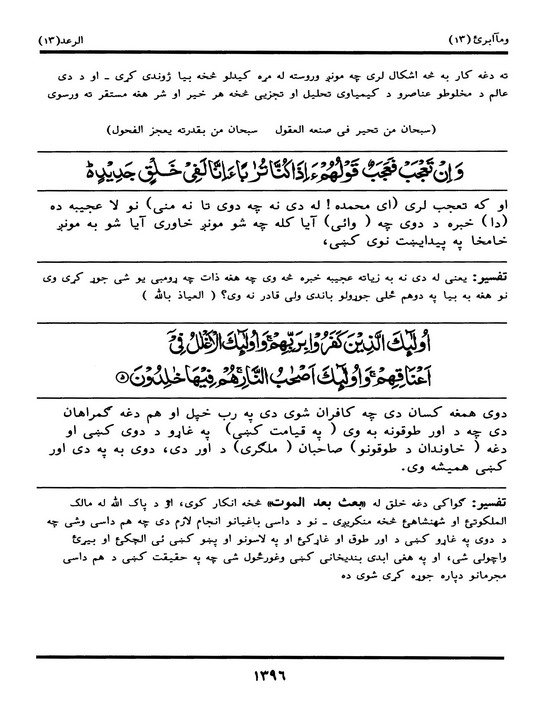 ومآأبرئ (١٣)
الرعد (١٣)
ته دغه کار به څه اشکال لری چه مونږ وروسته له مړه کیدلو څخه بیا ژوندی کړی ـ او د دی
عالم د مخلوطو عناصرو د کیمیاوی تحلیل او تجزیی څخه هر خیر او شر هغه مستقر ته ورسوی
(سبحان من تحیر فی صنعه العقول    سبحان من بقدرته یعجز الفحول)
وَاِنْ تَعْجَبْ فَعَجَبٌ قَوْلُهُمْ ءَاِذَا كُنَّا تُرٰبًا ءَاِنَّا لَفِیْ خَلْقٍ جَدِیْدٍ ە
او که تعجب لری (ای محمده! له دی نه چه دوی تا نه منی) نو لا عجیبه ده
(دا) خبره د دوی چه ( وائی) آیا کله چه شو مونږ خاوری آیا شو به مونږ
خامخا په پیدایښت نوی کښی،
تفسیر: یعنی له دی نه به زیاته عجیبه خبره څه وی چه هغه ذات چه ړومبی یو شی جوړ کړی وی
نو هغه به بیا په دوهم ځلی جوړولو باندی ولی قادر نه وی؟ ( العیاذ بالله )
اُولٰٓئِكَ الَّذِیْنَ كَفَرُوْا بِرَبِّهِمْ ۚ وَاُولٰٓئِكَ الْاَغْلٰلُ فِیْٓ
اَعْنَاقِهِمْ ۚ وَاُولٰٓئِكَ اَصْحٰبُ النَّارِ ۚ هُمْ فِیْهَا خٰلِدُوْنَ ۝۵
دوی همغه کسان دی چه کافران شوی دی په رب خپل او هم دغه گمراهان
دی چه د اور طوقونه به وی ( په قیامت کښی) په غاړو د دوی کښی او
دغه ( خاوندان د طوقونو) صاحبان ( ملگری) د اور دی، دوی به په دی اور
کښی همیشه وی.
تفسیر: گواکی دغه خلق له «بعث بعد الموت» څخه انکار کوی، او د پاک الله له مالک
الملکوتئ او شهنشاهئ څخه منکریږی ـ نو د داسی باغیانو انجام لازم دی چه هم داسی وشی چه
د دوی په غاړو کښی د اور طوق او غاړکئ او په لاسونو او پښو کښی ئی الچکئ او بیړئ
واچولی شی، او په هغی ابدی بندیخانی کښی وغورځول شی چه په حقیقت کښی د هم داسی
مجرمانو دپاره جوړه کړی شوی ده
١٣٩٦